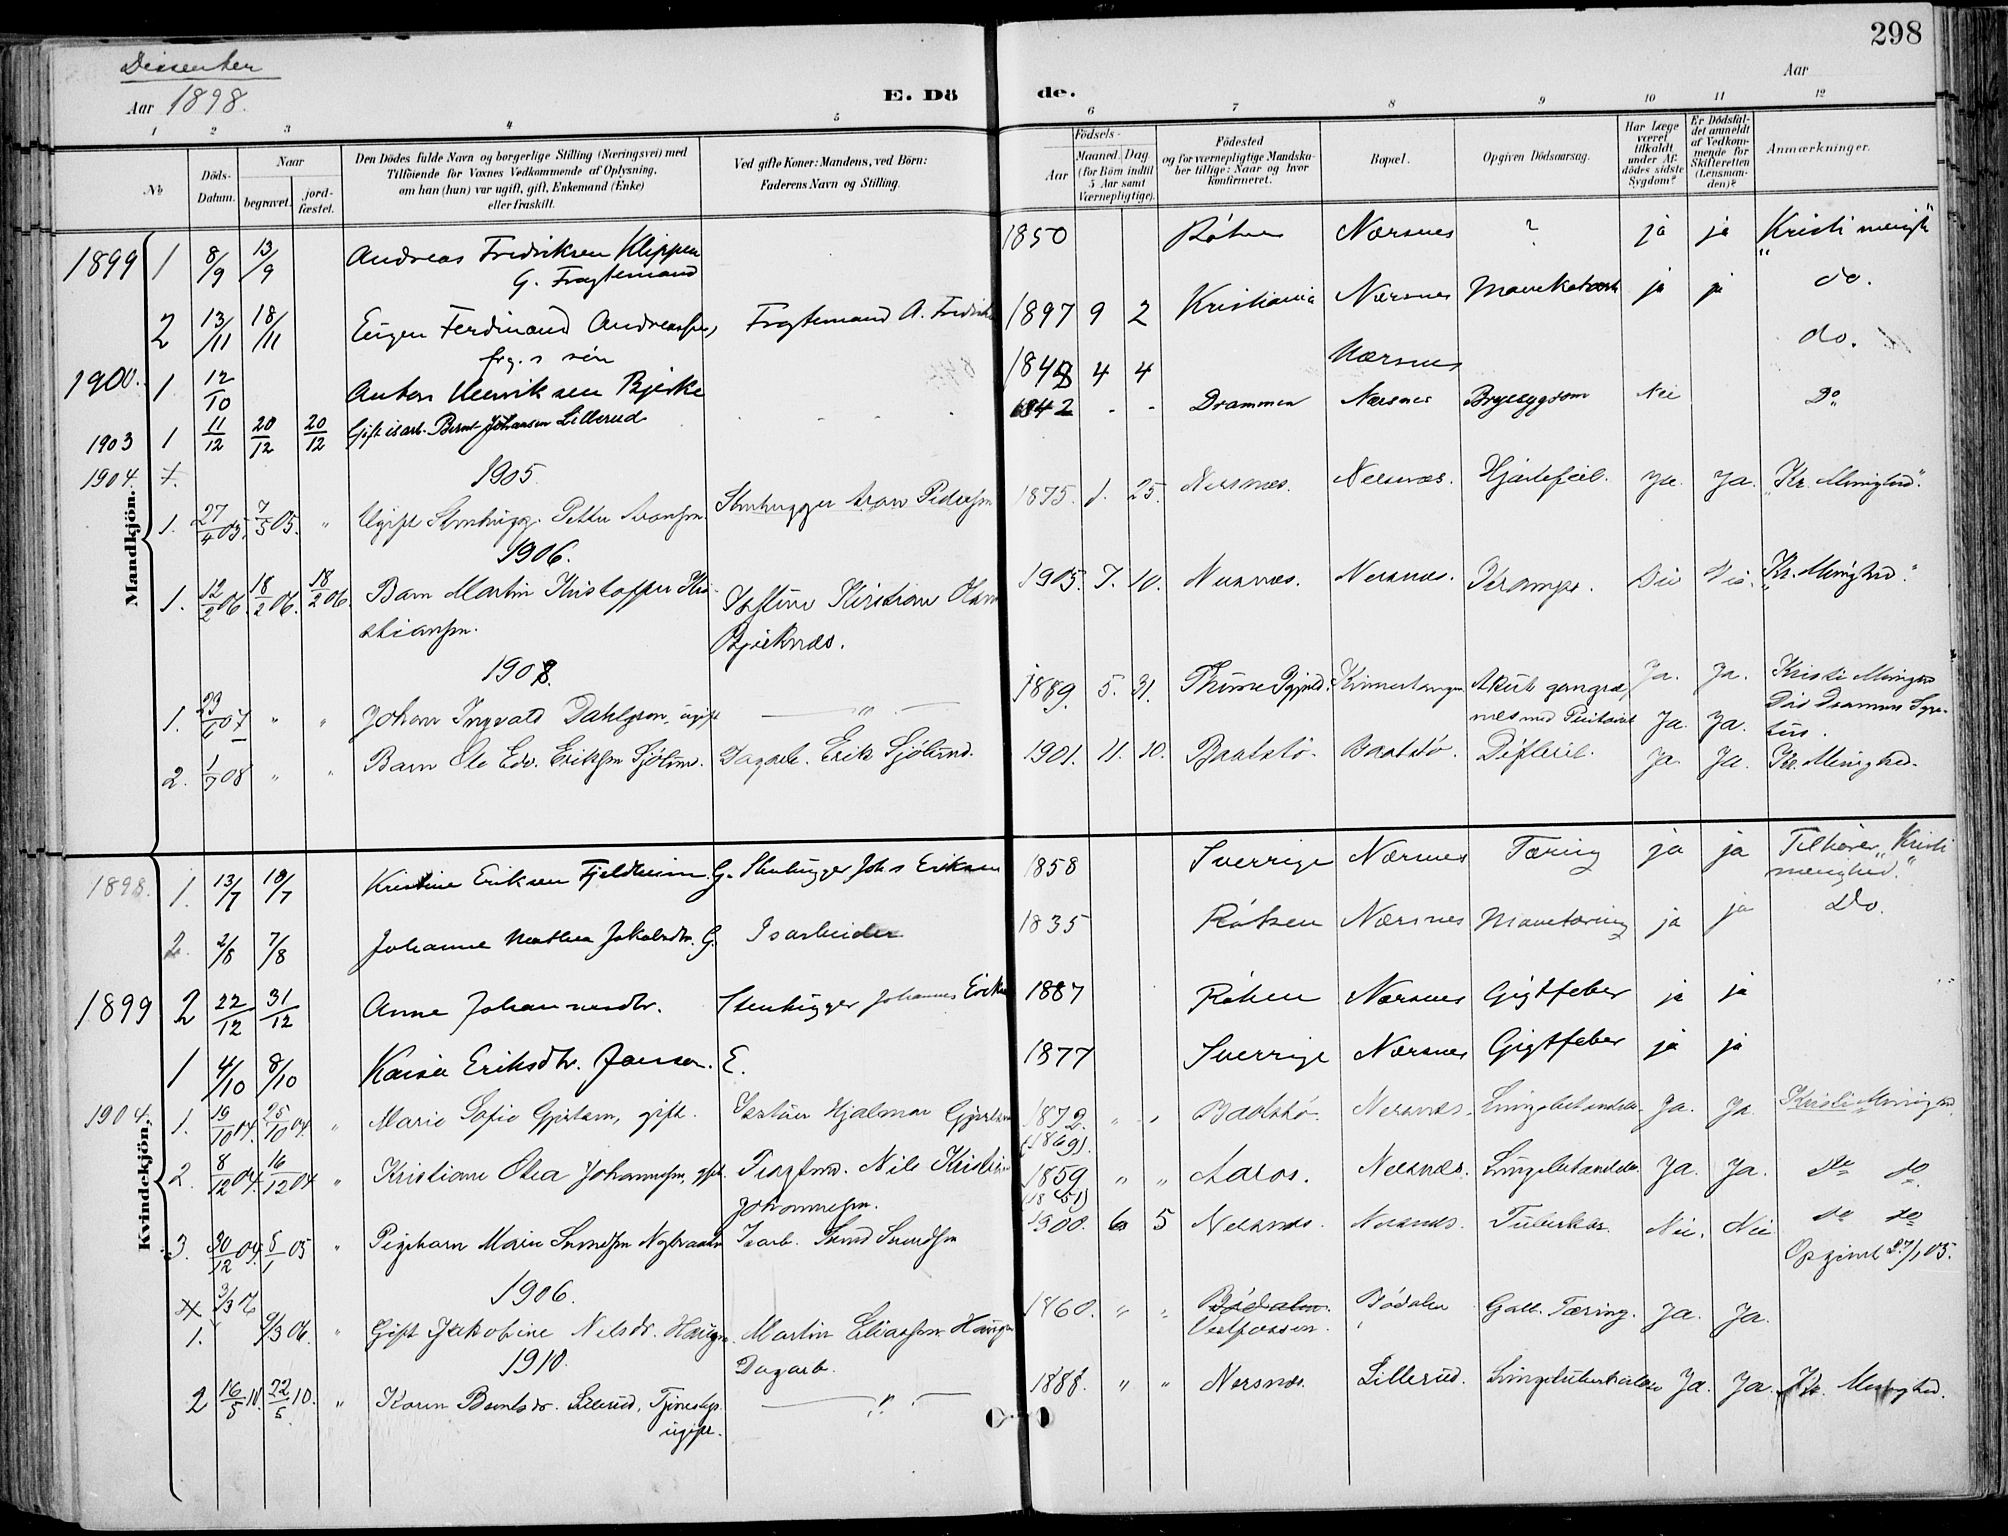 298
Dissenter
Aar 1898.
E. Dö de.
Aar
1 2 3 4 5 6 7 8 9 10 11 12
No
Döds-Datum.
Naar
begravet.
jord-fæstet.
Den Dödes fulde Navn og borgerlige Stilling (Næringsvei) med
Tilföiende for Voxnes Vedkommende af Oplysning,
om han (hun) var ugift, gift, Enkemand (Enke)
eller fraskilt.
Ved gifte Koner: Mandens, ved Börn:
Faderens Navn og Stilling.
Födsels-
Aar
Maaned. Dag.
(for Börn indtil
5 Aar samt
Værnepligtige).
Födested
og for værnepligtige Mandska-
ber tillige: Naar og hvor
konfirmeret.
Bopæl.
Opgiven Dödsaarsag.
Har Læge
været
tilkaldt
under Af-
dödes sidste
Sygdom?
Er Dödsfal-
det anmeldt
af Vedkom-
mende for
Skifteretten
(Lensman-
den)?
Anmærkninger.
Mandkjön.
1899 1 8/9 13/9 Andreas Fredriksen Klippen 1850 Røken Nærsnes ? ja ja "Kristi menigh"
G. Fragtemand
2 13/11 18/11 Eugen Ferdinand Andreassen, Fragtemand A. Fredriks 1897 9 2 Kristiania Nærsnes Mavekatarrh ja ja do.
frg.s søn
1900. 1. 12/10 Anton Henriksen Bjerke 1848 4 4 Nærsnes do.
1903 1 11/12 20/12 20/12 Gift isarb. Bernt Johansen Lillerud 1842 - - Drammen Nærsnes Brystsygdom Nei Do
1904. +.
1905
1. 27/4 05. 7/5 05. " Ugift Stenhugg. Petter Aronsen. Stenhugger Aron Pedersen 1875. 1. 25. Nersnæs. Nersnæs. Hjertefeil. Ja. Ja. "Kr. Menighed".
1906.
1. 12/2 06. 18/2 06. 18/2 06. Barn Martin Kristoffer Kri- Kristian Olsen 1905. 7. 10. Nersnæs. Nersnæs. Krampe. Nei Nei. "Kr. Menighed."
stiansen. Bjerknæs.
1908.
1. 23/6 07 " " Johan Ingvald Dahlgren, ugift " 1889. 5. 31. Kinnertangen Akut gangræ- Ja. Ja. Kristi Menighed
nøs med Ja. Ja. Drammen
2. 1/7 08 " " Barn Ole Edv. Eriksen Sjölund. Dagarb. Erik Sjölund. 1901. 11. 10. Baalstø. Baalstø. Difterit. Ja. Ja. Kr. Menighed.
Kvindekjön.
1898. 1. 13/7 18/7 Kristine Eriksen Fjeldheim. G. Stenhugger Johs Eriksen 1858 Sverrige Nærsnes Tæring ja ja Tilhører "Kristi
menighed."
2. 2/8 7/8 Johanne Mathea Jakobsdtr. G. Isarbeider 1835 Røken Nærsnes Mavetæring ja ja Do.
1899 2 22/12 31/12 Anne Johannesdtr. Stenhugger Johannes Eriks 1887 Røken Nærsnes Gigtfeber ja ja
1 4/10 8/10 Kaisa Eriksdtr. Jonsen. E. 1877 Sverrige Nærsnes Gigtfeber ja ja
1904. 1. 19/10 04. 25/10 04. " Marie Sofie Gjertsen, gift. Hjalmar Gjertsen 1872. " " Baalstø. Nersnæs. Lungebetændelse. Ja. Ja. Kristi Menighed.
(1869).
2. 8/12 04. 16/12 04 " Kristiane Olea Johannesen, gift. Fragtmd. Nils Kristian 1859 " " Aaros. Nersnæs. Lungebetændelse. Ja. Ja. do do
Johannesen. (1851)
3. 30/12 04. 5/1 05 " Pigebarn Marie Svendsen Nybraaten Isarb. Svend Svendsen 1900. 6 5 Nersnæs. Nersnæs. Tuberkler. Nei. Nei do do
Opgivet 27/1 05.
1906.
+ 3/3 1. 9/3 06. " Gift Jakobine Nilsdr. Haugen. Martin Eliassen Haugen 1860. " " Bødalen. Bødalen Gall. Tæring. Ja. Ja.
Dagarb. Vestfossen.
1910.
2 16/5 10. 22/5 10. " Karen Berntsdr. Lillerud, Tjenestep. " 1888. " " Nersnæs. Lillerud. Lungetuberkulose Ja. Ja. Kr. Menighed.
ugift.